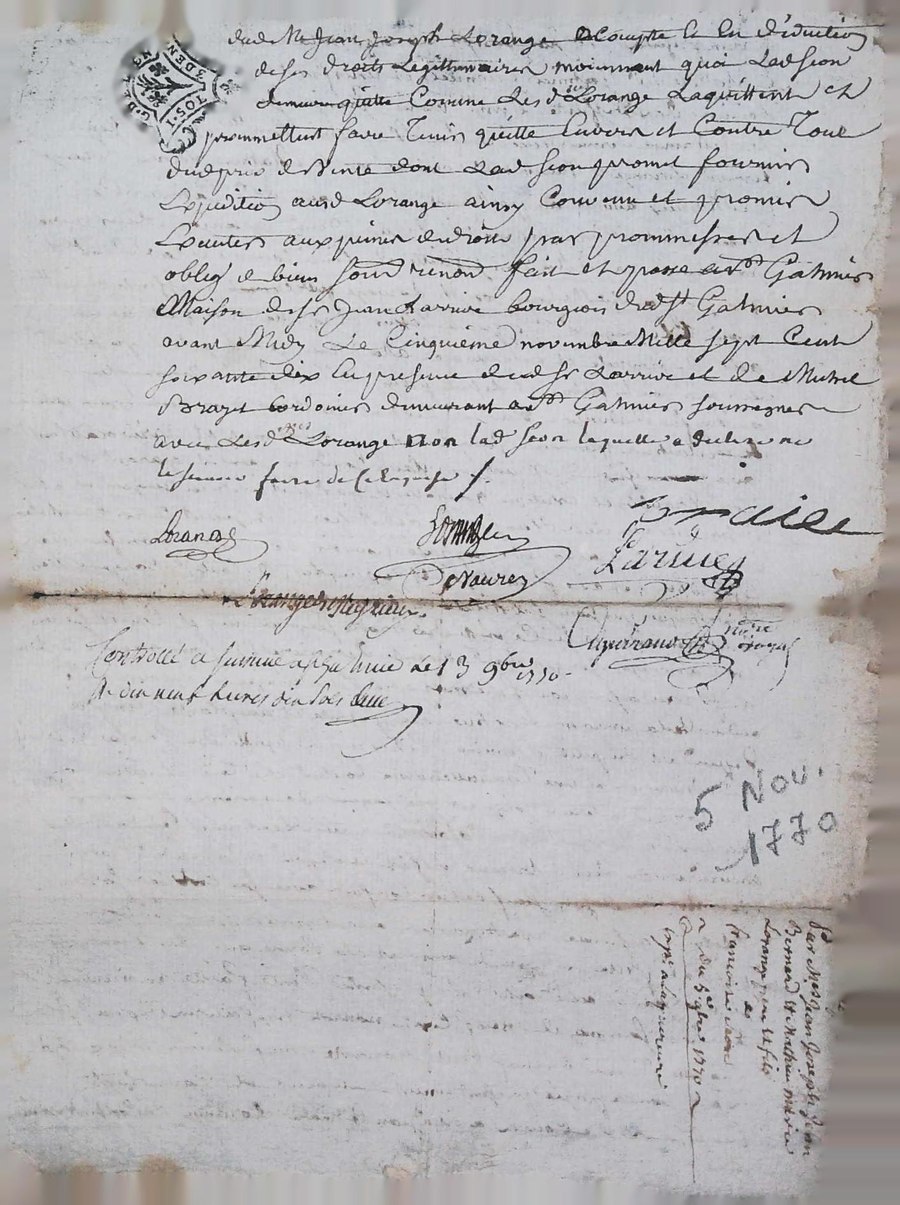 dud Me Jean Joseph Lorange a Compte et en déduction
de ses droits Legittimaires moiennant quoi Lad sion
demeure quitte Comme Les d Lorange Laquittent et
promettent faire Tenir quitte Envers et Contre Tous
dud prix de Vente dont Lad sion promet fournir
Expedition aud Lorange ainsy Convenu et promis
Executer aux peines de droit par prommesses et
oblig de biens soum renon fait et passé a St Galmier
Maison de sr Jean Larrive bourgeois dud St Galmier
avant Midy Le Cinquieme novembre Mille sept Cent
soixante dix En presence dud sr Larrive et de Michel
Brazet cordonier demeurant a St Galmier soussignes
avec Les d Lorange non lad sion laquelle a declaré ne
le scavoir faire de ce enquise
Lorange
Lorange
Larrive
Lorange
Controllé a St galmier le 13 9bre 1770
Rt dix neuf Livres dix sols
5 Nov.
1770
G DE L
3 DEN
Par Mes Jean Joseph Jean
Bernard et Mathieu Marie
Lorange pere et fils
a
francoise sion
du 5e 9bre 1770
expn a laquereur